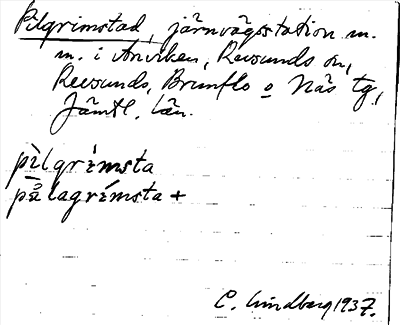 Pilgrimstad, järnvägsstation m.
m. i Anviken, Revsunds sn,
Revsunds, Brunflo o Näs tg,
Jämtl. län.
pìlgrímsta
pålagrímsta +
C. Lindberg 1937.